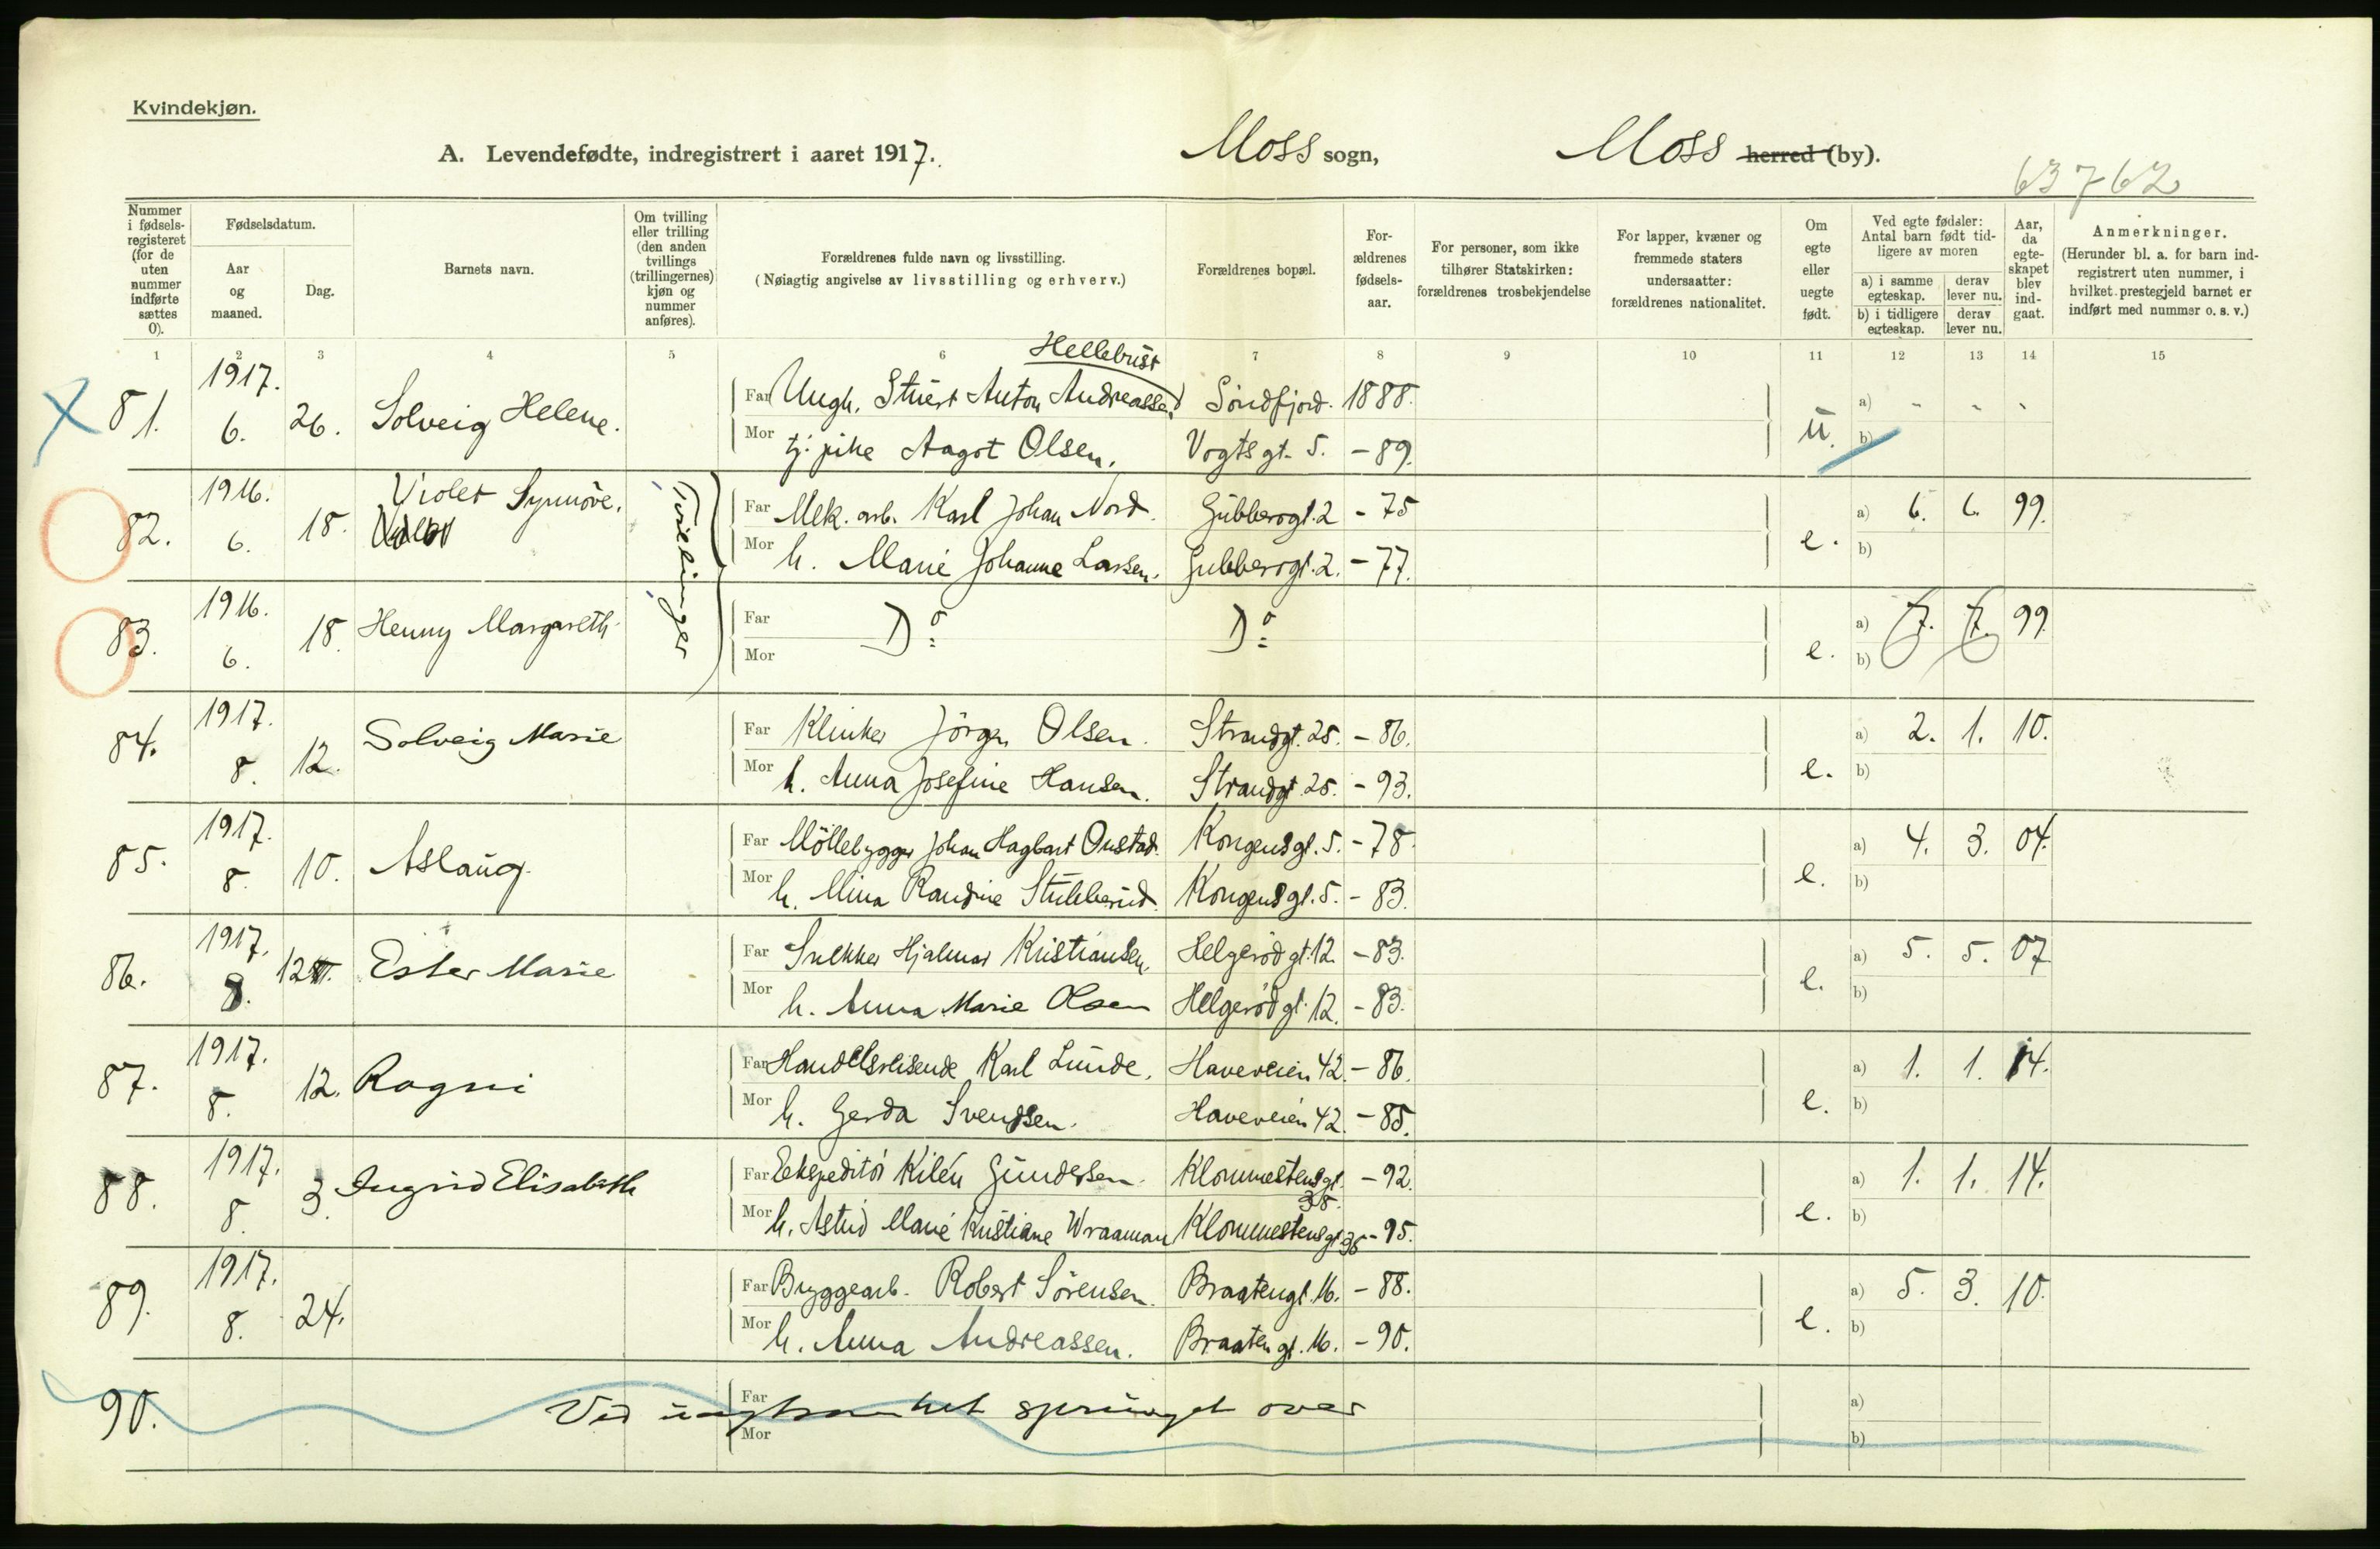 Kvindekjøn.
A. Levendefødte, indregistrert i aaret 1917. Moss sogn, Moss herred (by).
63762
Nummer i fødsels-registeret (for de uten nummer indførte sættes 0).
Fødselsdatum.
Aar og maaned.
Dag.
Barnets navn.
Om tvilling eller trilling (den anden tvillings (trillingernes) kjøn og nummer anføres).
Forældrenes fulde navn og livsstilling.
(Nøiagtig angivelse av livsstilling og erhverv.)
Forældrenes bopæl.
For-ældrenes fødsels-aar.
For personer, som ikke tilhører Statskirken: forældrenes trosbekjendelse
For lapper, kvæner og fremmede staters undersaatter: forældrenes nationalitet.
Om egte eller uegte født.
Ved egte fødsler: Antal barn født tid-ligere av moren
a) i samme egteskap. derav lever nu.
b) i tidligere egteskap. derav lever nu.
Aar, da egte-skapet blev ind-gaat.
Anmerkninger.
(Herunder bl. a. for barn ind-registrert uten nummer, i hvilket prestegjeld barnet er indført med nummer o. s. v.)
1 2 3 4 5 6 7 8 9 10 11 12 13 14 15
Hellebust
81. 1917. 6. 26. Solveig Helene. Far Ungk. Stuert Anton Andreassen Söndfjord. 1888. u. a) - - -
Mor tj. pike Aagot Olsen. Vogtsgt. 5. - 89. b)
82. 1916. 6. 18. Violet Synnöve. Tvillinger Far Mek. arb. Karl Johan Nord. Gubberogt. 2 - 75 e. a) 6. 6. 99.
Mor h. Marie Johanne Larsen. Gubberogt. 2. - 77. b)
83. 1916. 6. 18. Henny Margareth Far Mor Do Do e. a) 7. 7. 99. b)
84. 1917. 8. 12. Solveig Marie Far Klinker Jörgen Olsen. Strandgt. 25. - 86. e. a) 2. 1. 10.
Mor h. Anna Josefine Hansen. Strandgt. 25. - 93. b)
85. 1917. 8. 10. Aslaug. Far Möllebygger Johan Hagbart Onstad. Kongensgt. 5. - 78. e. a) 4. 3. 04.
Mor h. Mina Randine Stubberud. Kongensgt. 5. - 83. b)
86. 1917. 8. 12. Ester Marie Far Snekker Hjalmar Kristiansen. Helgerödgt. 12. - 83. e. a) 5. 5. 07
Mor h. Anna Marie Olsen Helgerödgt. 12. - 83. b)
87. 1917. 8. 12. Ragni Far Handelsreisende Karl Lunde. Haveveien 42. - 86. e. a) 1. 1. 14.
Mor h. Gerda Svendsen. Haveveien 42. - 85. b)
88. 1917. 8. 3. Ingrid Elisabeth Far Eekspeditör Kilén Gundersen. Klommestensgt. 35. - 92. e. a) 1. 1. 14.
Mor h. Astrid Marie Kristiane Wraaman Klommestensgt 35 - 95. b)
89. 1917. 8. 24. Far Bryggearb. Robert Sörensen. Braatengt. 16. - 88. e. a) 5. 3. 10.
Mor h. Anna Andreassen. Braatengt. 16. - 90. b)
90. Far Mor Ved uagtsomhet sprunget over a) b)